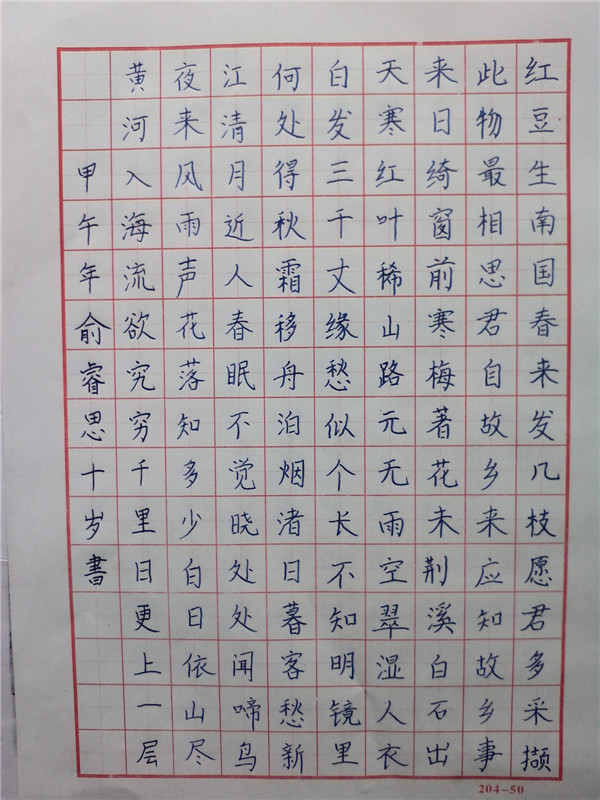 红豆生南国春来发几枝愿君多采撷
此物最相思君自故乡来应知故乡事
来日绮窗前寒梅著花未荆溪白石出
天寒红叶稀山路元无雨空翠湿人衣
白发三千丈缘愁似个长不知明镜里
何处得秋霜移舟泊烟渚日暮客愁新
江清月近人春眠不觉晓处处闻啼鸟
夜来风雨声花落知多少白日依山尽
黄河入海流欲穷千里日更上一层
甲午年俞睿思十岁書
204-50